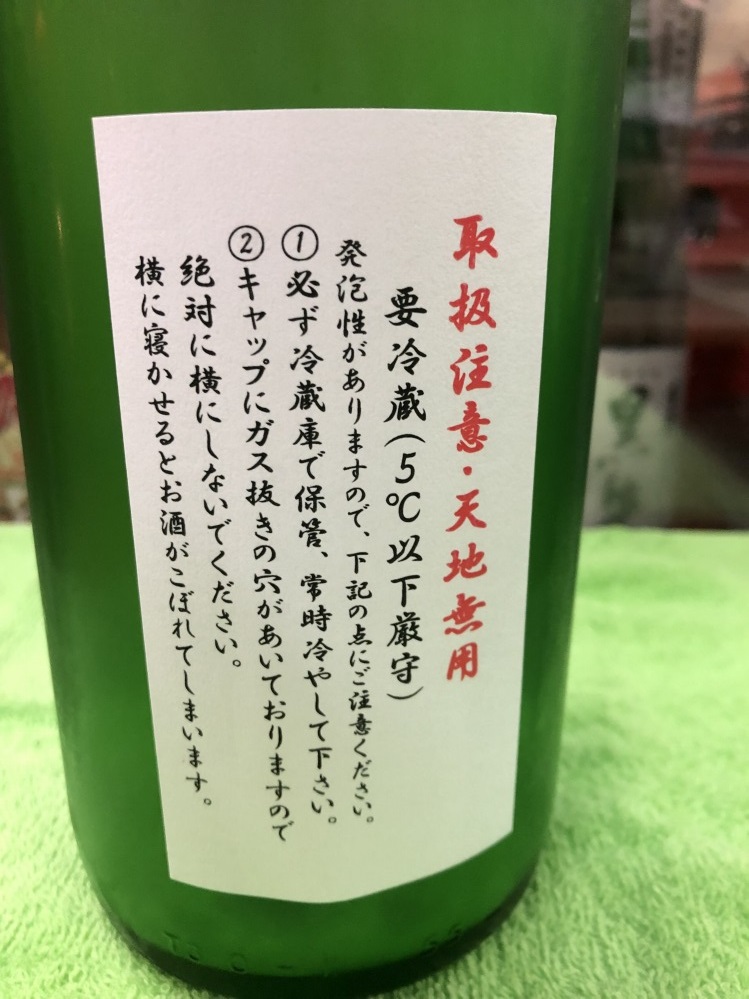 取扱注意・天地無用
要冷蔵(5℃以下厳守)
発泡性がありますので、下記の点にご注意ください。
①必ず冷蔵庫で保管、常時冷やして下さい。
②キャップにガス抜きの穴があいておりますので
絶対に横にしないでください。
横に寝かせるとお酒がこぼれてしまいます。